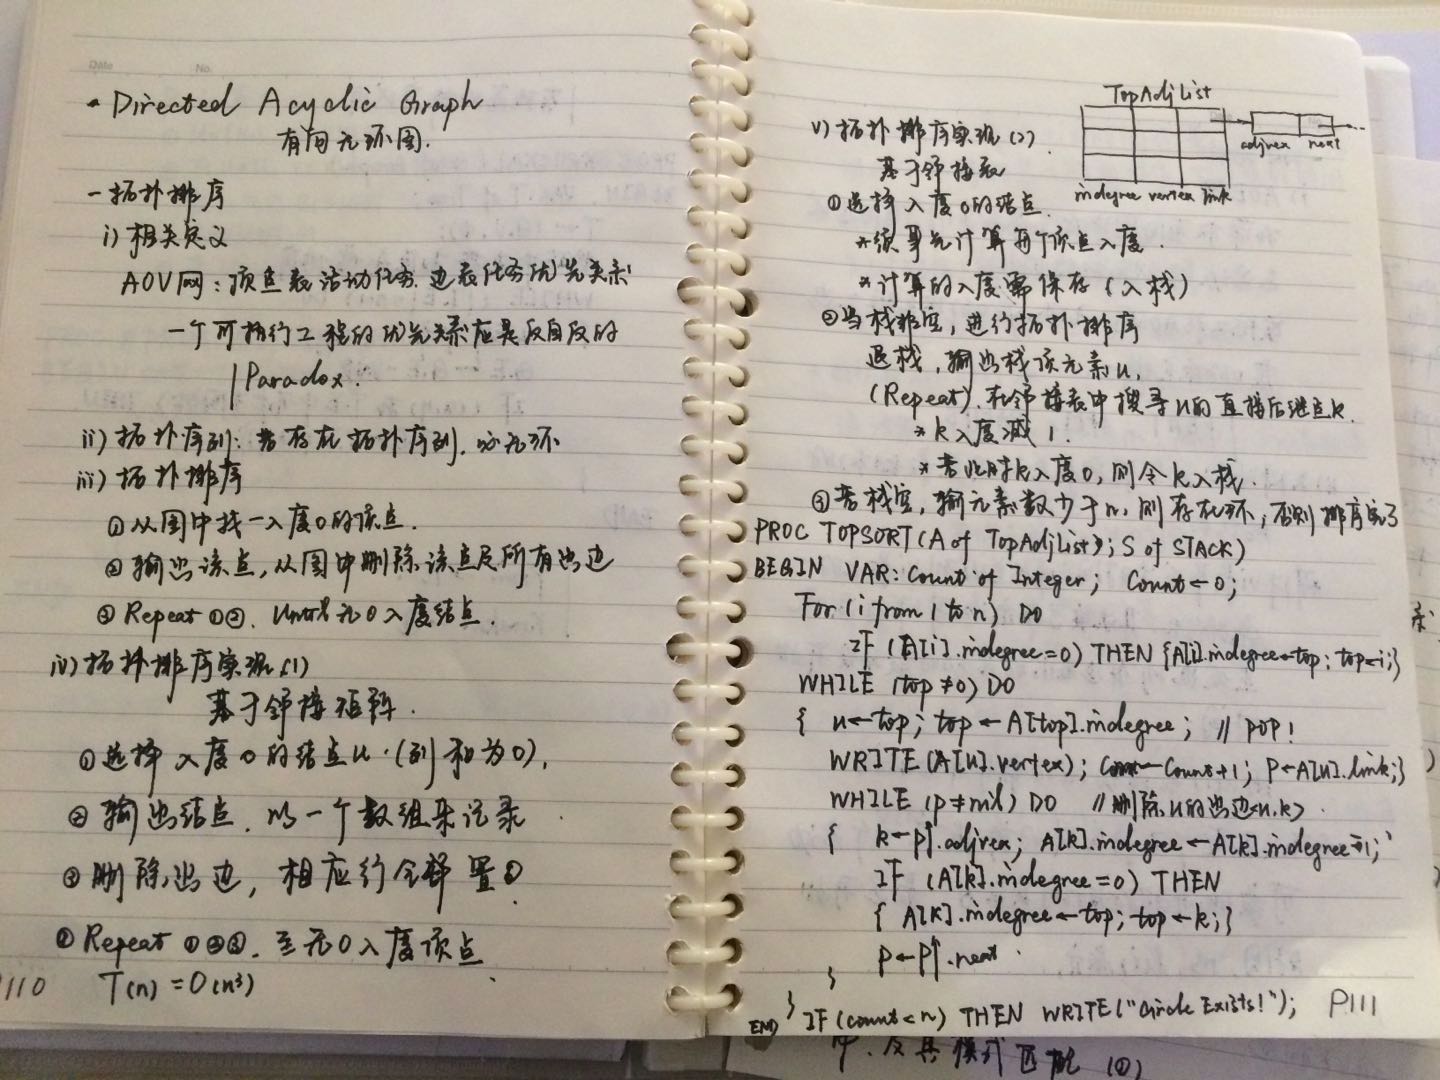 Date No.
• Directed Acyclic Graph
有向无环图.
一拓扑排序
i) 相关定义
AOV网：顶点表活动任务. 边表任务优先关系
一个可执行工程的优先关系应是反自反的
Paradox.
ii) 拓扑序列：若存在拓扑序列, 必无环
iii) 拓扑排序
①从图中找一入度0的顶点.
②输出该点, 从图中删除该点及所有出边
③ Repeat ①②. Until 无0入度结点.
iv) 拓扑排序实现(1)
基于邻接矩阵.
①选择入度0的结点u.(列和为0).
②输出结点. 以一个数组来记录
③删除出边, 相应行全部置0
④ Repeat ①②③. 至无0入度顶点.
T(n) = O(n³)
P110
TopAdjList
adjvex next
indegree vertex link
v) 拓扑排序实现(2)
基于邻接表
①选择入度0的结点.
*须事先计算每个顶点入度.
*计算的入度需保存(入栈)
②当栈非空, 进行拓扑排序
退栈, 输出栈顶元素u,
(Repeat). 在邻接表中搜寻u的直接后继点k.
*k入度减1.
*若此时k入度0, 则令k入栈.
③若栈空, 输元素数少于n, 则存在环, 否则排序完了
PROC TOPSORT(A of TopAdjList; S of STACK)
BEGIN VAR: Count of Integer; Count←0;
For (i from 1 to n) DO
IF (A[i].indegree=0) THEN {A[i].indegree←top; top←i;}
WHILE (top≠0) DO
{ u←top; top←A[top].indegree; // POP!
WRITE(A[u].vertex); Count←Count+1; P←A[u].link;}
WHILE (p≠nil) DO //删除u的出边<u,k>.
{ k←p↑.adjvex; A[k].indegree←A[k].indegree-1;
IF (A[k].indegree=0) THEN
{ A[k].indegree←top; top←k;}
P←P↑.next.
}
} IF (count<n) THEN WRITE("Circle Exists!");
END
P111
及其模式匹配 (2)